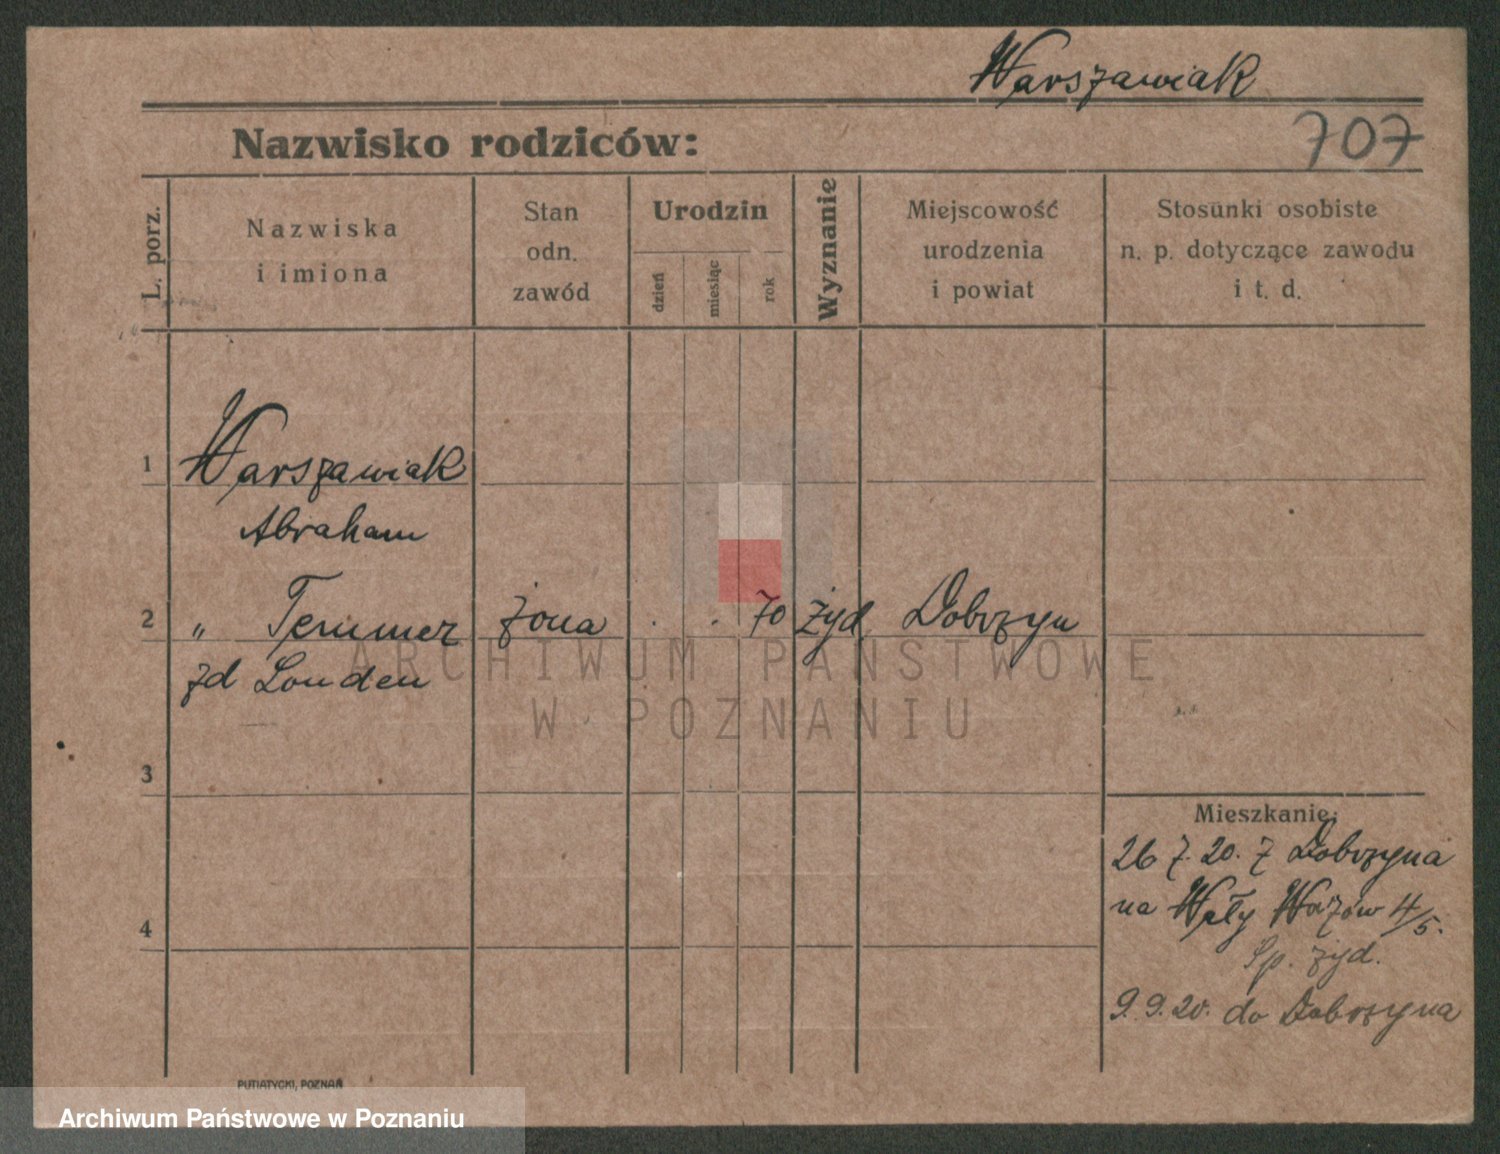 Warszawiak
707
Nazwisko rodziców:
L. porz.
Nazwiska
i imiona
Stan
odn.
zawód
Urodzin
dzień
miesiąc
rok
Wyznanie
Miejscowość
urodzenia
i powiat
Stosunki osobiste
n. p. dotyczące zawodu
i t. d.
1 Warszawiak
Abraham
2 " Temmer żona . . 70 żyd Dobrzyn
zd Londen
ARCHIWUM PAŃSTWOWE
W POZNANIU
3
Mieszkanie:
26 7. 20. z Dobrzyna
na Wały Wazów 4/5.
4
Sp. żyd.
9. 9. 20. do Dobrzyna
PUTIATYCKI, POZNAŃ
Archiwum Państwowe w Poznaniu